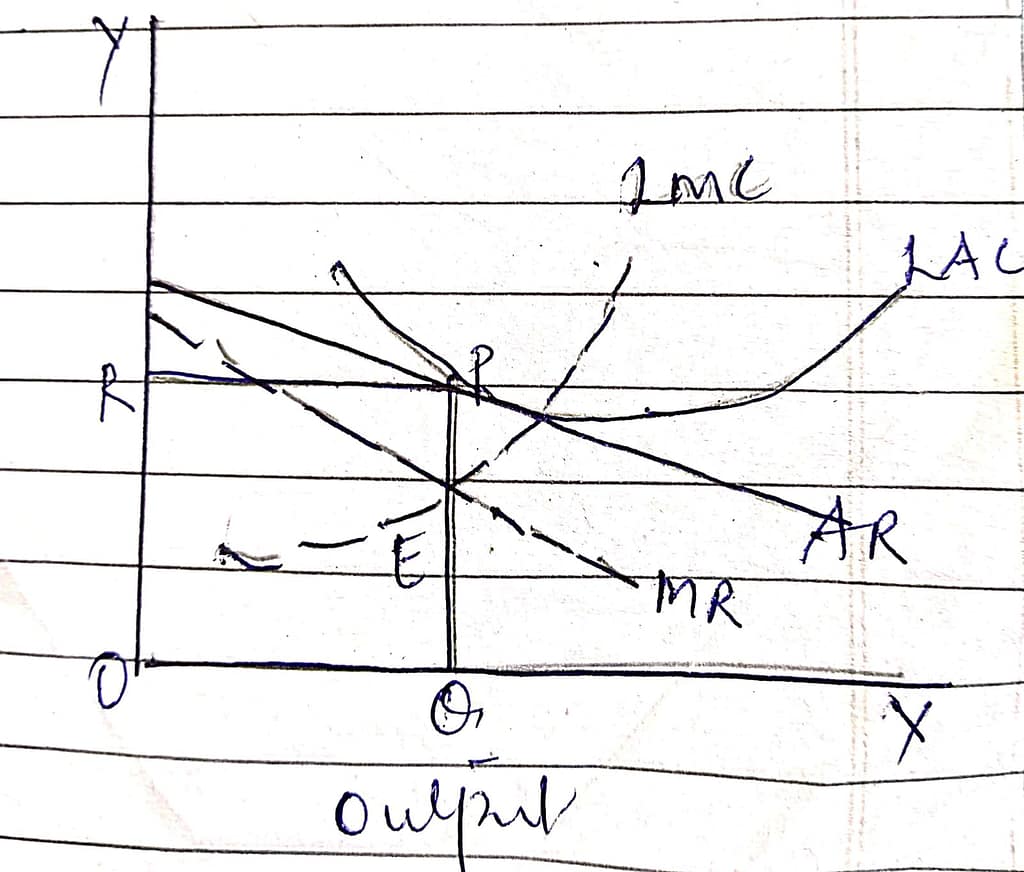 Y
LMC
LAC
P
R
E
AR
MR
O
Q1
X
Output